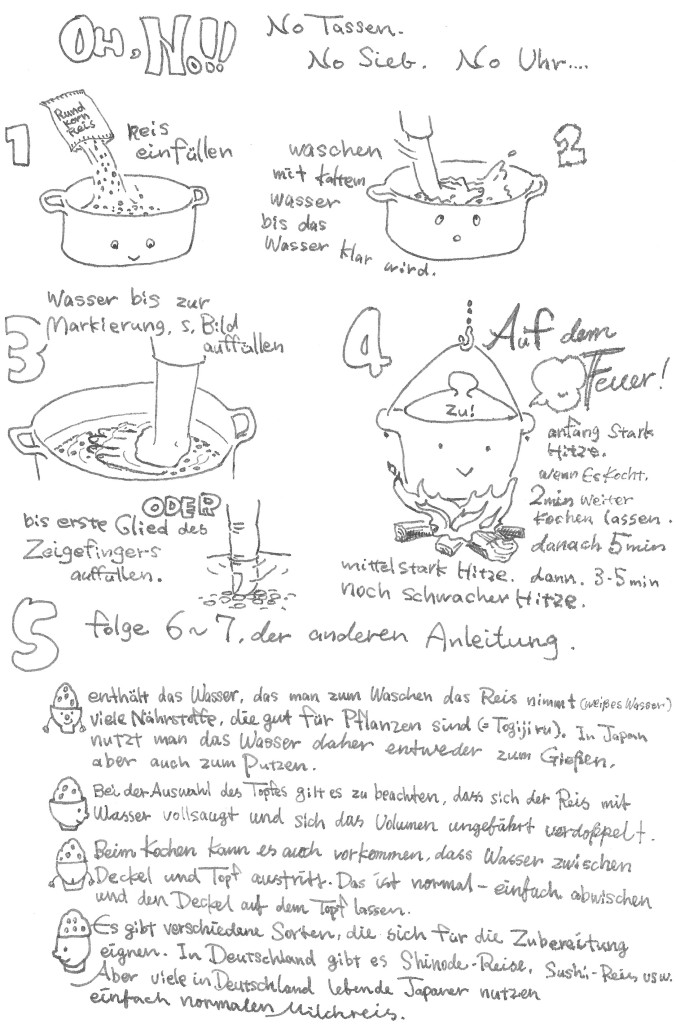 OH, NO!!
No Tassen.
No Sieb. No Uhr....
1
Rund
korn
Reis
Reis
einfüllen
2
waschen
mit kaltem
wasser
bis das
Wasser klar wird.
3
Wasser bis zur
Markierung, s. Bild
auffüllen
ODER
bis erste Glied des
Zeigefingers
auffüllen.
4
Zu!
Auf dem
Feuer!
anfang Stark
Hitze.
wenn Es Kocht.
2min weiter
kochen lassen.
danach 5min
mittelstark Hitze. dann. 3-5min
noch schwacher Hitze.
5
folge 6~7. der anderen Anleitung.
enthält das Wasser, das man zum Waschen das Reis nimmt (weißes Wasser)
viele Nährstoffe, die gut für Pflanzen sind (=Togijiru). In Japan
nutzt man das Wasser daher entweder zum Gießen,
aber auch zum Putzen.
Bei der Auswahl des Topfes gilt es zu beachten, dass sich der Reis mit
Wasser vollsaugt und sich das Volumen ungefährt verdoppelt.
Beim Kochen kann es auch vorkommen, dass Wasser zwischen
Deckel und Topf austritt. Das ist normal - einfach abwischen
und den Deckel auf dem Topf lassen.
Es gibt verschiedene Sorten, die sich für die Zubereitung
eignen. In Deutschland gibt es Shinode-Reise, Sushi-Reis usw.
Aber viele in Deutschland lebende Japaner nutzen
einfach normalen Milchreis.